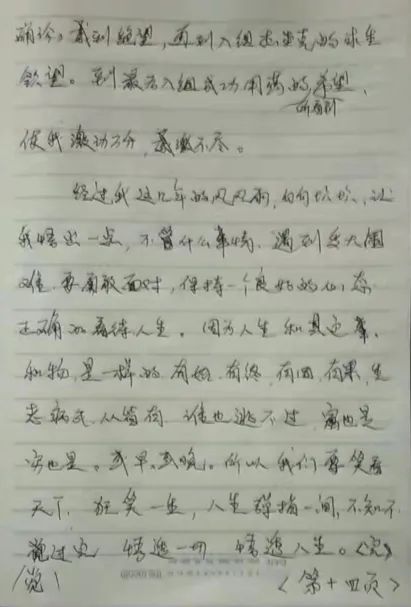 确诊。感到绝望，再到入组出坐克的求生
欲望。到最后入组成功用药的希望、
所有的
使我激动万分，感激不尽。
经过我这几年的风风雨，的坎坎，让
我悟出一点，不管什么事情，遇到多大困
难，要勇敢面对，保持一个良好的心态
正确的看待人生。因为人生和其它事、
和物，是一样的有始、有终，有因，有果，生
老病死，人皆有，谁也逃不过，富也是
穷也是。或早，或晚。所以我们要笑看
天下，狂笑一生，人生弹指一间，不知不
觉过完，悟透一切，悟透人生。《完》
（觉）
〈第十四页〉